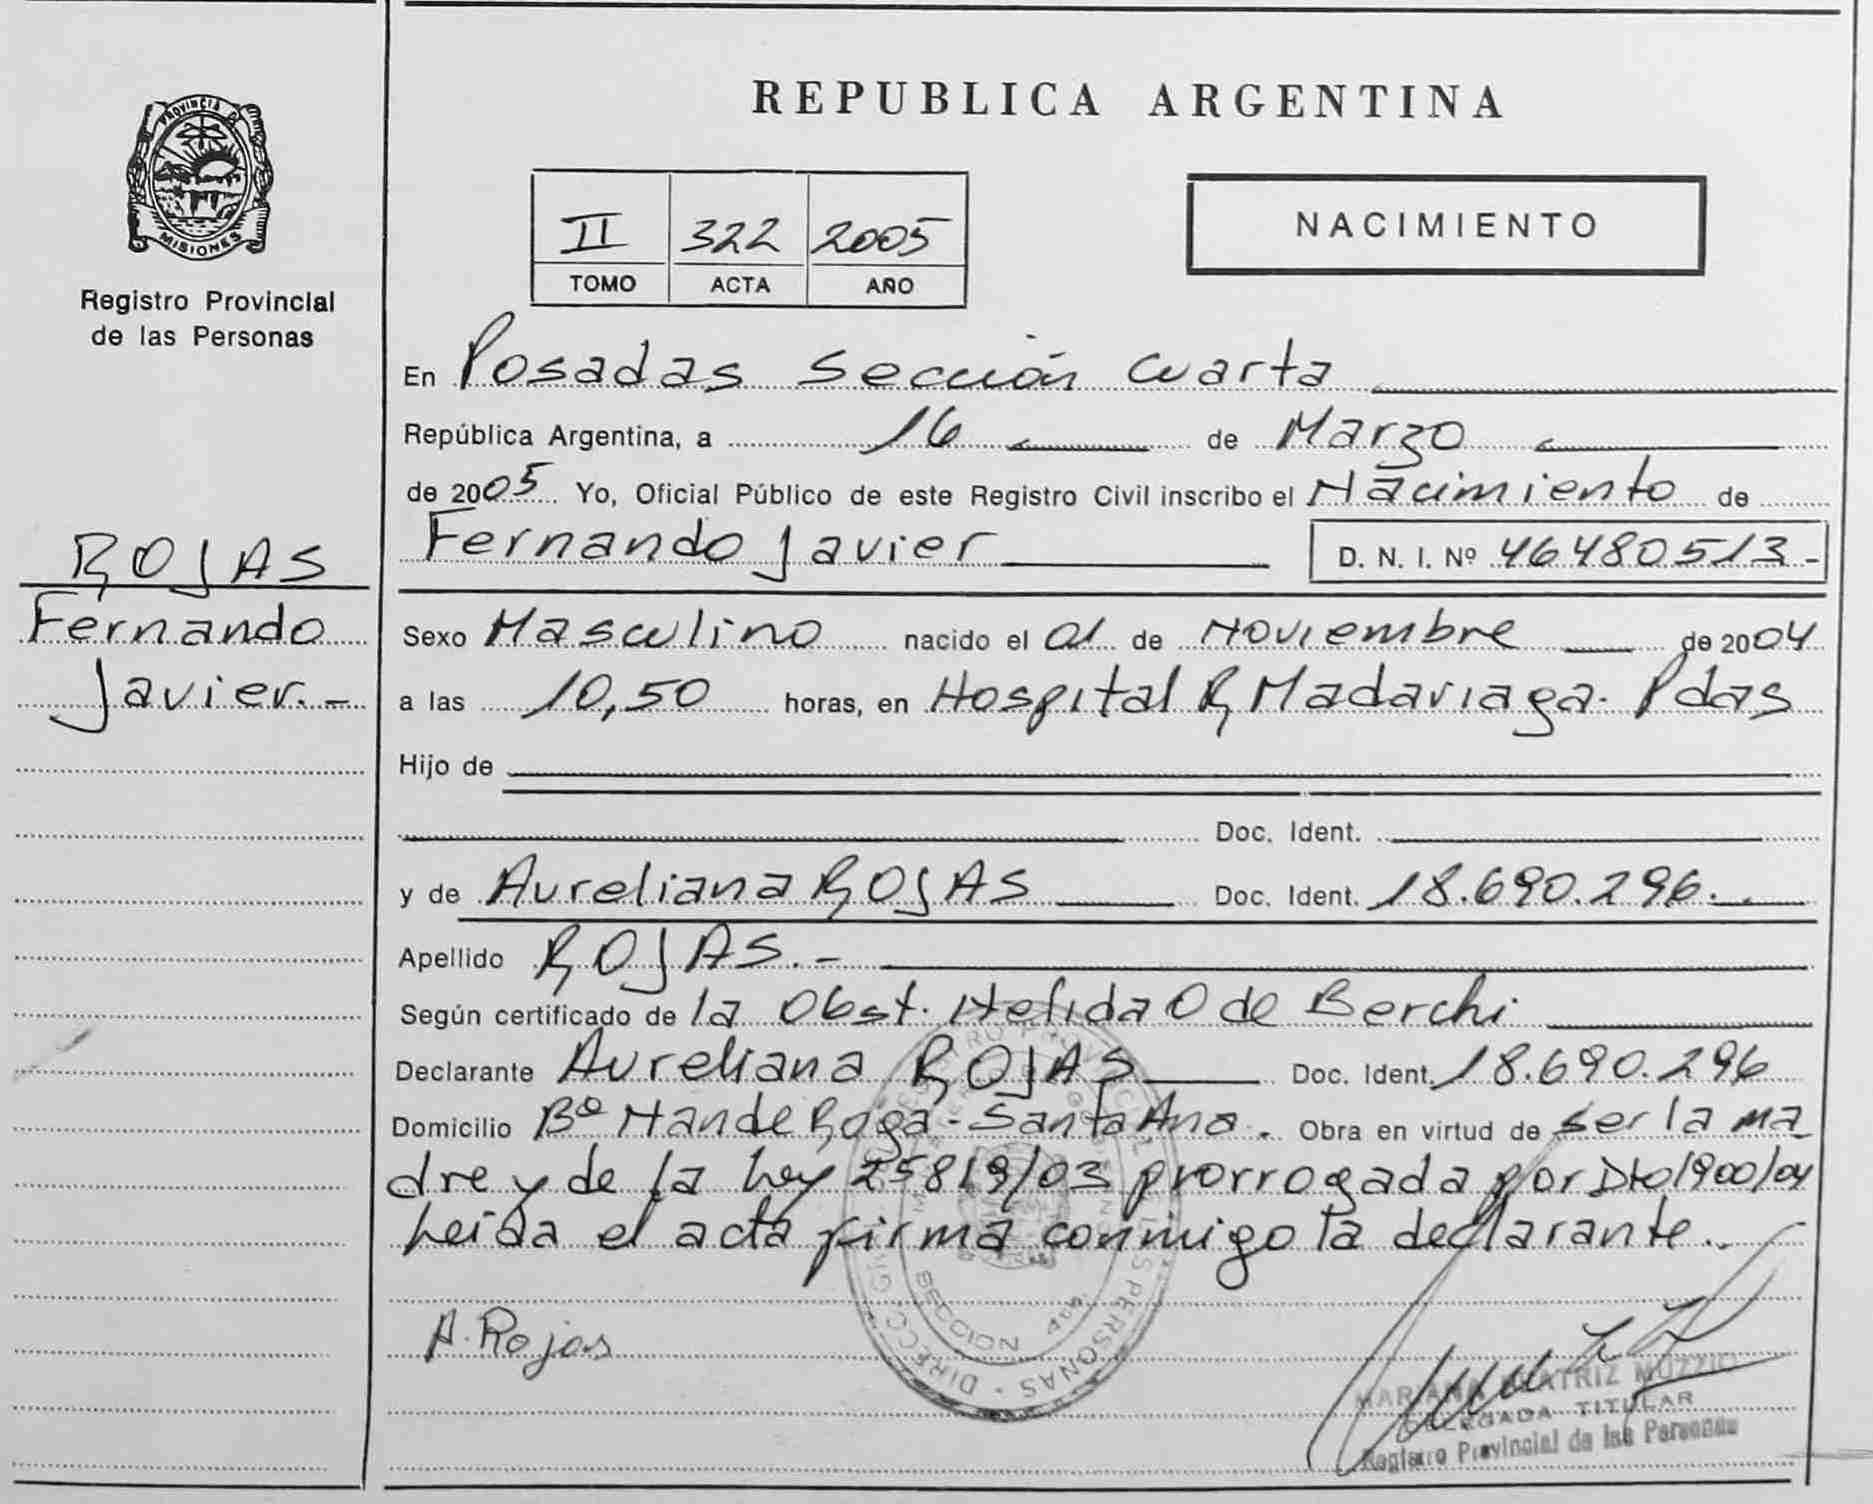 PROVINCIA D
MISIONES
Registro Provincial
de las Personas
ROJAS
Fernando
Javier.-
REPUBLICA ARGENTINA
II 322 2005
TOMO ACTA AÑO
NACIMIENTO
En Posadas Sección Cuarta
República Argentina, a 16 de Marzo
de 2005 Yo, Oficial Público de este Registro Civil inscribo el Nacimiento de
Fernando Javier D. N. I. Nº 46480513-
Sexo Masculino nacido el 01 de Noviembre de 2004
a las 10,50 horas, en Hospital R Madariaga. Pdas
Hijo de
Doc. Ident.
y de Aureliana ROJAS Doc. Ident. 18.690.296.
Apellido ROJAS.-
Según certificado de la Obst. Nelida O de Berchi
Declarante Aureliana ROJAS Doc. Ident. 18.690.296
Domicilio Bº Ñande Roga - Santa Ana. Obra en virtud de ser la ma
dre y de la Ley 25819/03 prorrogada por Dto 1900/04
Leida el acta firma conmigo la declarante.
A. Rojas
SECCION 4ta.
MARIANA BEATRIZ MUZZIO
DELEGADA TITULAR
Registro Provincial de las Personas